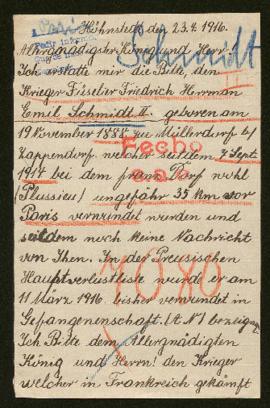 Höhnstedt, den 23.4.1916.
Allergnädigster König und Herr!
Schmidt
Ich erstatte mir die Bitte, den
Krieger Füselier Friedrich Herrman
Emil Schmidt II. geboren am
19 November 1888 zu Müllerdorf b/
Zappendorf. welcher seit dem 7 Sept
Fecho
bei dem franz. Dorf wohl
ungefähr 35 Km vor
Paris verwundet wurden und
seitdem noch keine Nachricht
von Ihen. In der Preusischen
Hauptverlustliste wurd er am
11 März 1916. bisher verwundet in
Gefangenenschaft. (A N)
Ich Bitte dem Allergnädigten
König und Herrn! den Krieger
welcher in Frankreich gekämpft